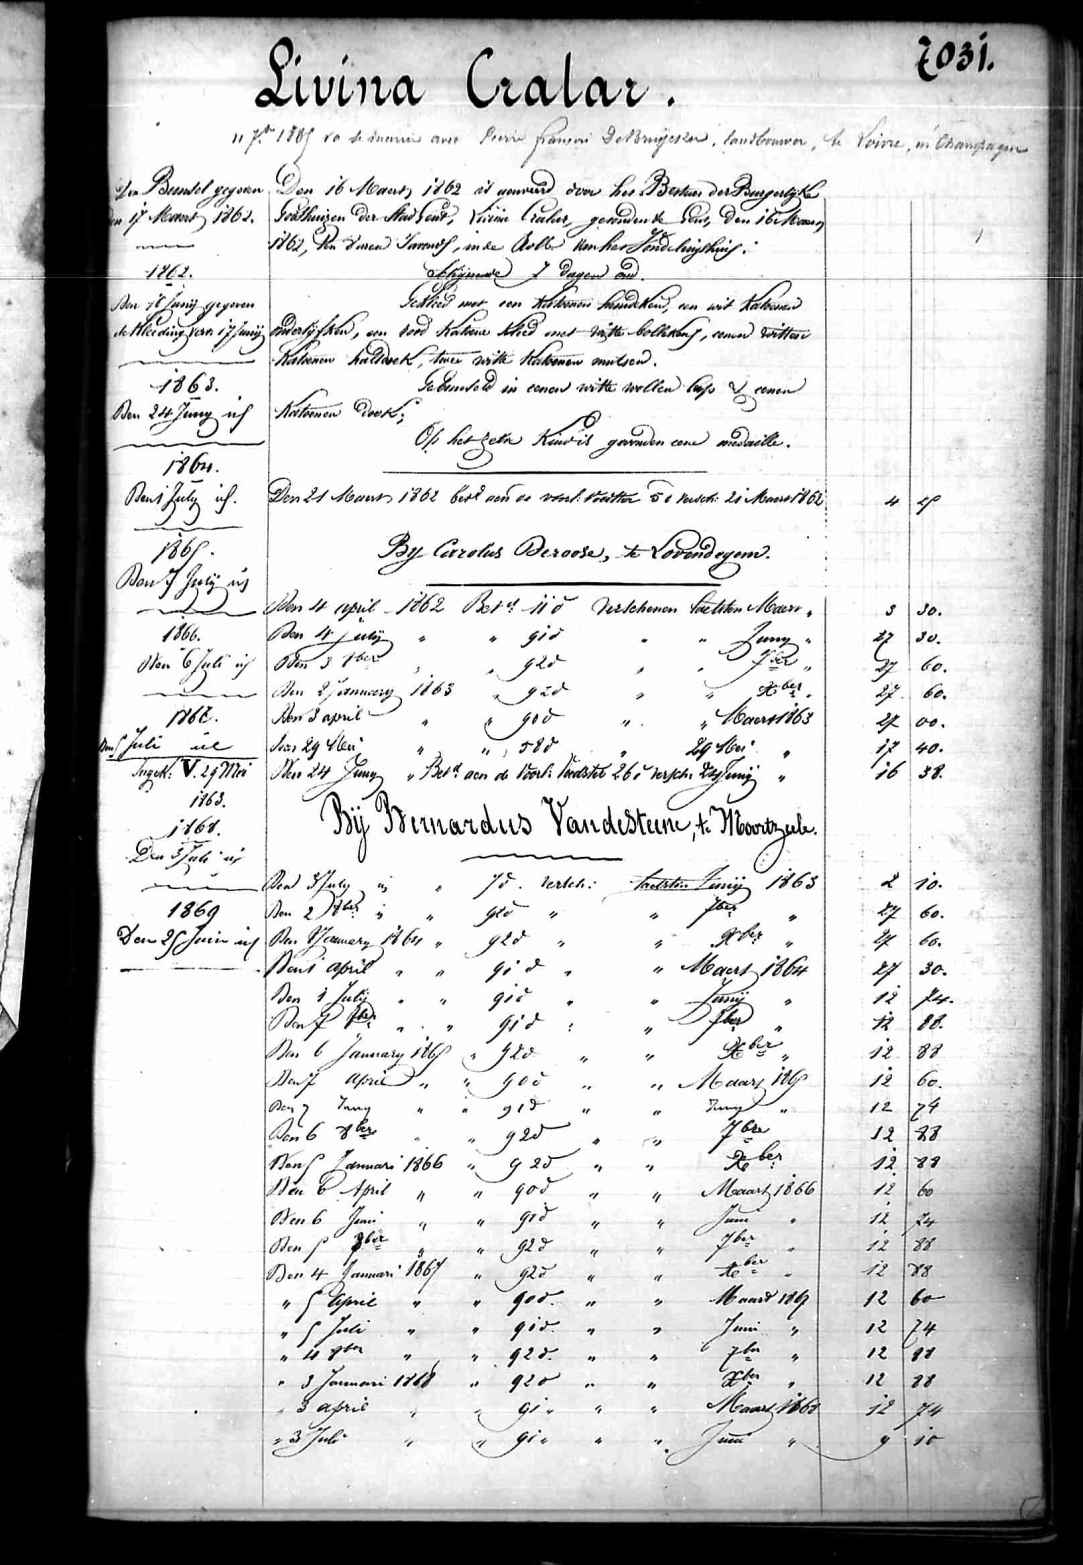 7031.
Livina Cralar.
11 7br 1885 va se marier avec Pierre François DeBruijcker, landbouwer, te Loivre, in Champagne
Den Bunsel gegeven
den 17 Maert 1862.
1862.
Den 18 Junij gegeven
de kleeding van 17 Junij
1863.
Den 24 Juny id
1864.
Den 1 July id.
1865.
Den 7 July id
1866.
Den 6 Juli id
1867.
Den 5 Juli id
Ingek: V. 29 Mei
1863.
1868.
Den 3 Juli id
1869
Den 25 Juin id
Den 16 Maert 1862 is aenveerd door het Bestier der Burgerlijke
Godthuizen der Stad Gent, Livina Cralar, gevonden te Gent, den 16 Maert
1862, ten uren 's avonds, in de Rolle van het Vondelingshuis.
Schijnende 7 dagen oud.
Gekleed met een katoenen hemdeken, een wit katoenen
onderlijfken, een rood katoene kleed met witte bollekens, eenen witten
katoenen halsdoek, twee witte katoenen mutsen.
Gebunseld in eenen witte wollen lap & eenen
katoenen doek;
Op het zelve Kind is gevonden eene medaille.
Den 21 Maert 1862 bet. aen de voorl. voedster 5 d versch: 21 Maert 1862 4 25
By Carolus Deroose, te Lovendegem.
Den 4 april 1862 Betd 11 d verschenen laetsten Maert " 3 30.
Den 4 july " " 91 d " " Juny " 27 30.
Den 3 8ber " " 92 d " " 7ber " 27 60.
Den 2 January 1863 " 92 d " " Xber " 27 60.
Den 3 april " " 90 d " " Maert 1863 27 00.
Den 29 Mei " " 58 d " 29 Mei " 17 40.
Den 24 Juny " Betd aen de voorl. voedster 26 d versch. 24 Junij " 16 38.
Bij Bernardus Vandesteene, te Moortzeele.
Den 3 July id " 7 d. versch: laetsten Junij 1863 2 10.
Den 2 8ber " " 92 d " " 7ber " 27 60.
Den 8 January 1864 " 92 d " " Xber " 27 60.
Den 1 april " " 91 d " " Maert 1864 27 30.
Den 1 July " " 91 d " " Junij " 12 74.
Den 7 8ber " " 92 d " " 7ber " 12 88.
Den 6 January 1865 " 92 d " " Xber " 12 88
Den 7 april " " 90 d " " Maart 1865 12 60.
Den 7 July " " 91 d " " Juny " 12 74
Den 6 8ber " " 92 d " " 7bre 12 88
Den 5 Januari 1866 " 92 d " " Xber 12 88
Den 6 April " " 90 d " " Maart 1866 12 60
Den 6 Juni " " 91 d " " Juni " 12 74
Den 5 8ber " " 92 d " " 7ber " 12 88
Den 4 Januari 1867 " 92 d " " Xber " 12 88
" 5 April " " 90 d. " " Maart 1867 12 60
" 5 Juli " " 91 d. " " Juni " 12 74
" 4 8ber " " 92 d. " " 7ber " 12 88
" 3 Januari 1868 " 92 d " " Xber " 12 88
" 3 april " " 91 " " " Maart 1868 12 74
" 3 Juli " " 91 " " " Juni " 9 10